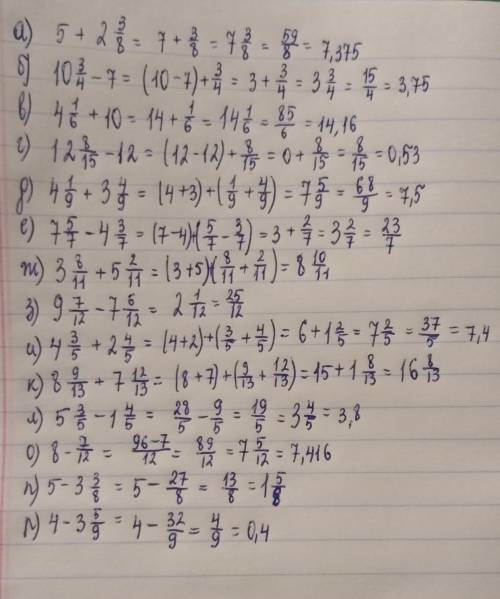 а) 5 + 2 3/8 = 7 + 3/8 = 7 3/8 = 59/8 = 7,375
б) 10 3/4 - 7 = (10-7) + 3/4 = 3 + 3/4 = 3 3/4 = 15/4 = 3,75
в) 4 1/6 + 10 = 14 + 1/6 = 14 1/6 = 85/6 = 14,16
г) 12 8/15 - 12 = (12-12) + 8/15 = 0 + 8/15 = 8/15 = 0,53
д) 4 1/9 + 3 4/9 = (4+3) + (1/9 + 4/9) = 7 5/9 = 68/9 = 7,5
е) 7 5/7 - 4 3/7 = (7-4)+(5/7 - 3/7) = 3 + 2/7 = 3 2/7 = 23/7
ж) 3 8/11 + 5 2/11 = (3+5)(8/11 + 2/11) = 8 10/11
з) 9 7/12 - 7 6/12 = 2 1/12 = 25/12
и) 4 3/5 + 2 4/5 = (4+2) + (3/5 + 4/5) = 6 + 1 2/5 = 7 2/5 = 37/5 = 7,4
к) 8 9/13 + 7 12/13 = (8+7) + (9/13 + 12/13) = 15 + 1 8/13 = 16 8/13
л) 5 3/5 - 1 4/5 = 28/5 - 9/5 = 19/5 = 3 4/5 = 3,8
о) 8 - 7/12 = 96-7/12 = 89/12 = 7 5/12 = 7,416
п) 5 - 3 3/8 = 5 - 27/8 = 13/8 = 1 5/8
р) 4 - 3 5/9 = 4 - 32/9 = 4/9 = 0,4